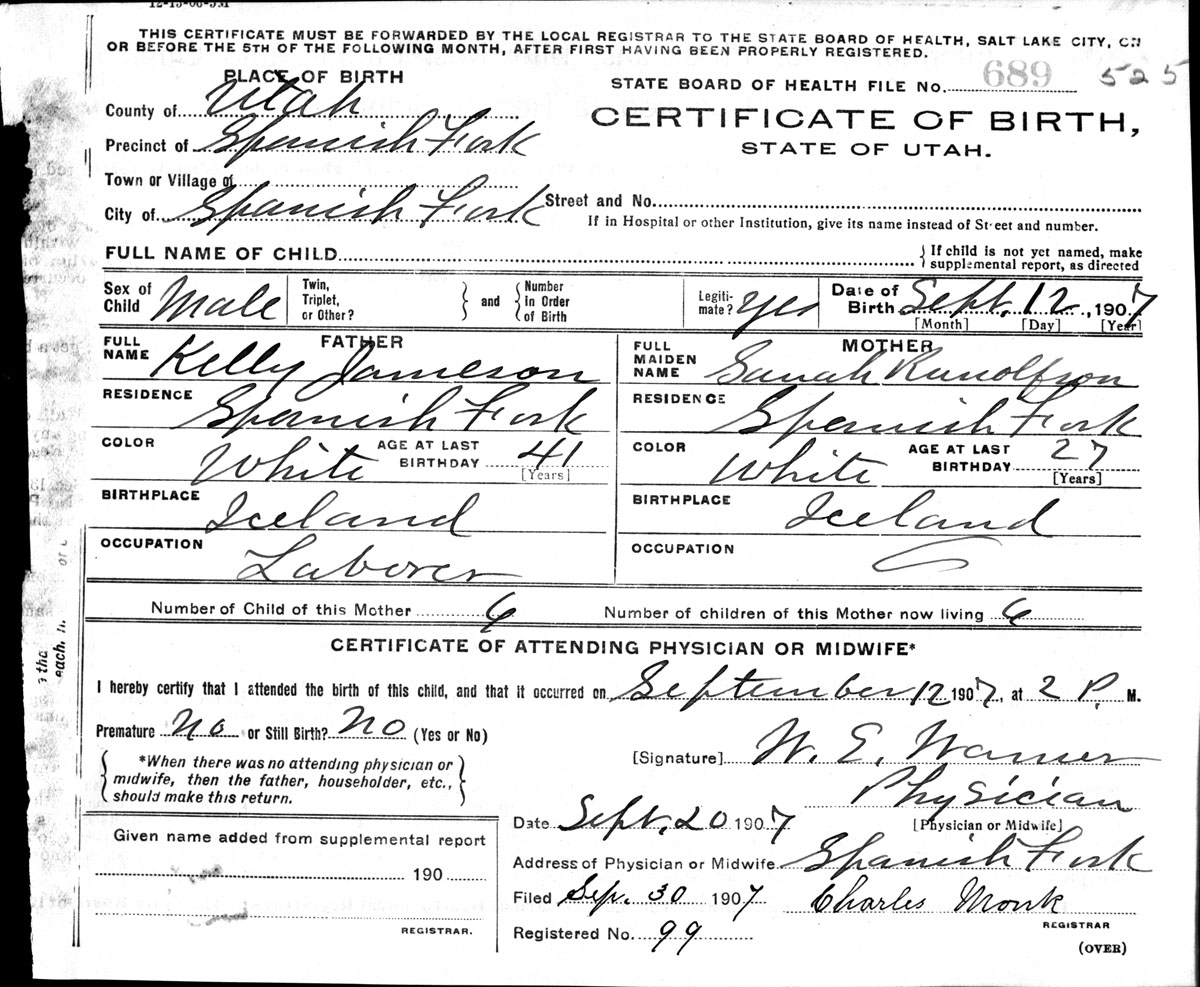 12-15-06-5M
THIS CERTIFICATE MUST BE FORWARDED BY THE LOCAL REGISTRAR TO THE STATE BOARD OF HEALTH, SALT LAKE CITY, ON
OR BEFORE THE 5TH OF THE FOLLOWING MONTH, AFTER FIRST HAVING BEEN PROPERLY REGISTERED.
PLACE OF BIRTH
STATE BOARD OF HEALTH FILE No. 689 525
County of Utah
CERTIFICATE OF BIRTH,
STATE OF UTAH.
Precinct of Spanish Fork
Town or Village of
City of Spanish Fork Street and No.
If in Hospital or other Institution, give its name instead of Street and number.
FULL NAME OF CHILD
{ If child is not yet named, make
supplemental report, as directed
Sex of Child Male Twin, Triplet, or Other? } and { Number in Order of Birth Legiti-mate? yes Date of Birth Sept. 12, 1907
[Month] [Day] [Year]
FATHER
FULL NAME Kelly Jameson
RESIDENCE Spanish Fork
COLOR White AGE AT LAST BIRTHDAY 41
[Years]
BIRTHPLACE Iceland
OCCUPATION Laborer
MOTHER
FULL MAIDEN NAME Sarah Runolfson
RESIDENCE Spanish Fork
COLOR White AGE AT LAST BIRTHDAY 27
[Years]
BIRTHPLACE Iceland
OCCUPATION
Number of Child of this Mother 6 Number of children of this Mother now living 6
CERTIFICATE OF ATTENDING PHYSICIAN OR MIDWIFE*
I hereby certify that I attended the birth of this child, and that it occurred on September 12 1907, at 2 P. M.
Premature No or Still Birth? No (Yes or No)
{ *When there was no attending physician or
midwife, then the father, householder, etc.,
should make this return. }
[Signature] W. E. Warner
Physician
[Physician or Midwife]
Date Sept. 20 1907
Address of Physician or Midwife Spanish Fork
Filed Sep. 30 1907 Charles Monk
REGISTRAR
Registered No. 99
(OVER)
Given name added from supplemental report
190
REGISTRAR.